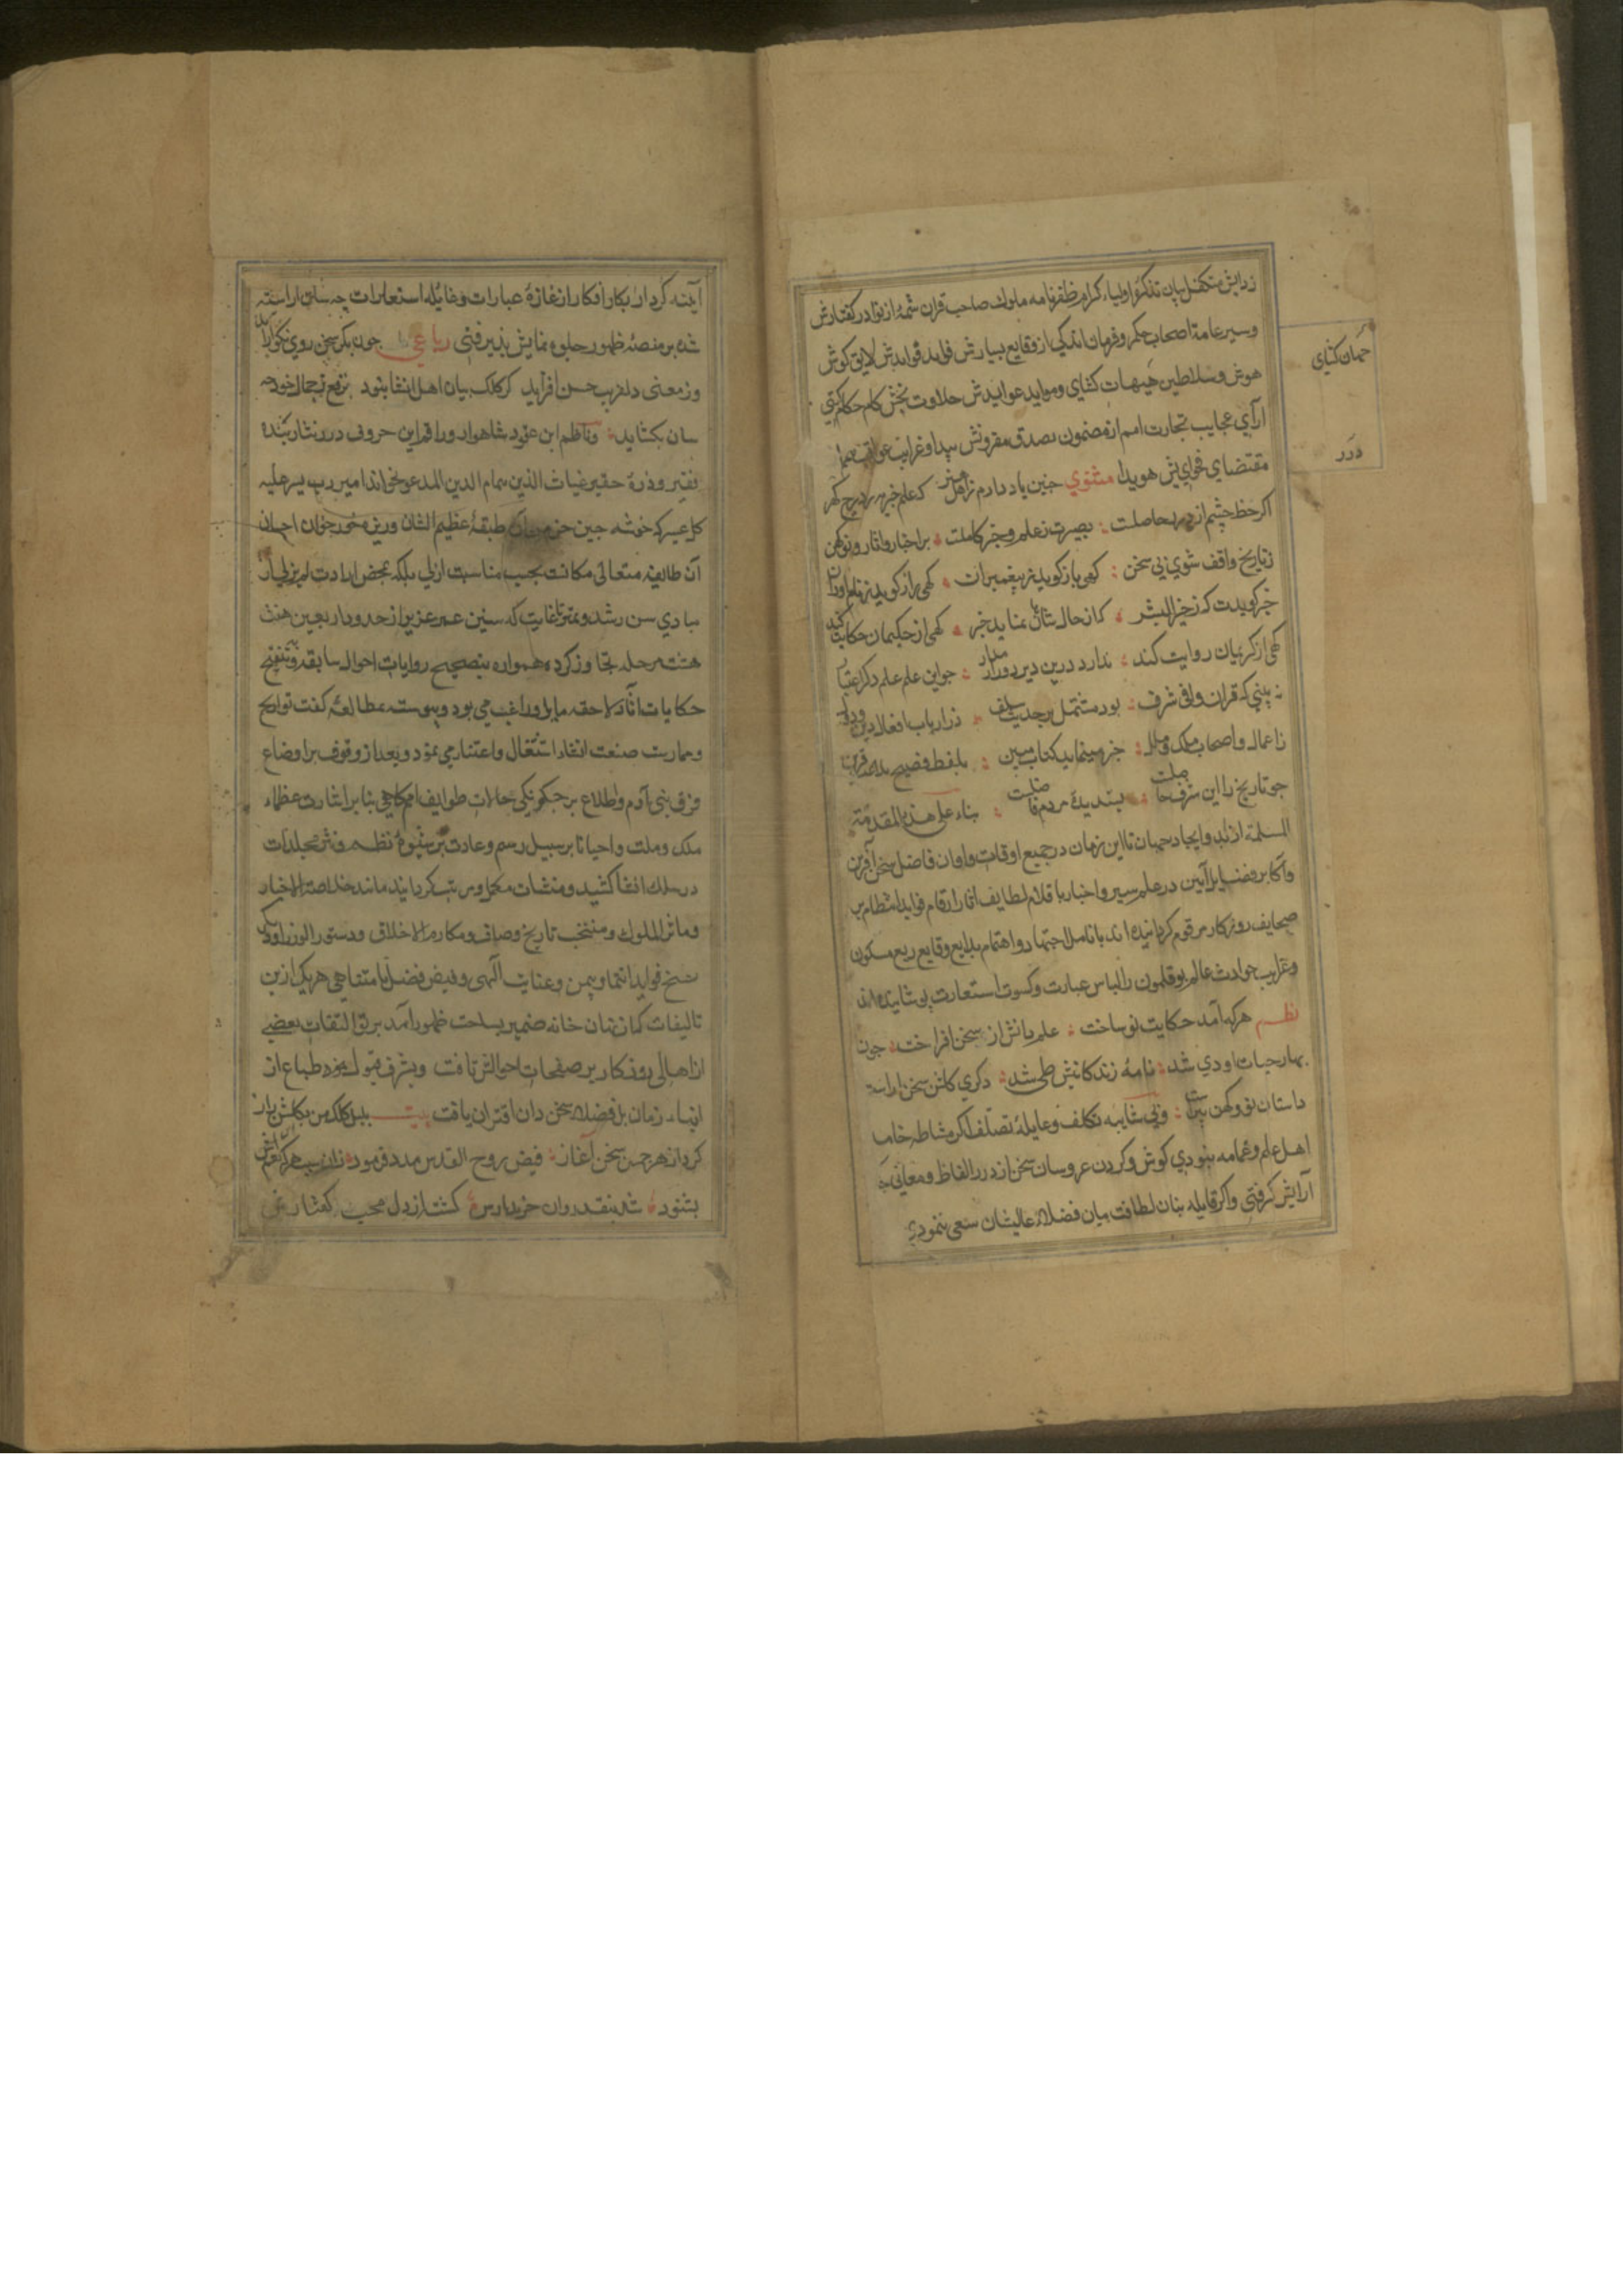 زدایش متکفل بیان تذکرۀ اولیاء کرام ظفرنامه ملوك صاحب قران شمۀ از نوادر کفتارش
وسیر عامۀ اصحاب حکم وفرمان اندکی از وقایع بسیارش فواید قوایدش لایق کوش
هوش وسلاطین جیهات کشای وموایدعوایدش حلاوت بخش کام حکام کیتی
ارآی عجایب تجارت امم از مضمون صدق مقرونش پیدا وغرایب عواقب
مقتضای فحوایش هویدا مثنوي جنین یاد دارم ز اهل هنر که علم خبر به ز درج کهر
اکر حظ چشم از بصر حاصلت بصیرت ز علم وخبر کاملت بر اخبار واثار نو وکهن
زتاریخ واقف شوي بی سخن کهی باز کوید ز پیغمبران کهی راز کوید ز نام اوران
خبر کویدت که ز خیر البشر که از حال شاهان نماید خبر کهی از حکیمان حکایت کند
کهی از کریمان روایت کند ندارد درین دیر دوار مدار جو این علم علم دکر اعتبار
نه بینی که قران وافی شرف بود مشتمل بر حدیث سلف ذ ارباب افعال دین ودول
ز اعمال واصحاب ملک وملل خبر مینماید کتاب مبین بلفظ فصیح
جو تاریخ را این شرف حاصلست پسندیدۀ مردم فاضلست بناء علی هذه المقدمة
المسلمة از ابد وایجاد جهان تا این زمان در جمیع اوقات واوان فاضل سخن آفرین
واکابر فضایل آیین در علم سیر واخبار باقلام لطایف اثار ارقام فواید انتظام بر
صحایف روزکار مرقوم کردانیده اند با نامل اجتهاد واهتمام بدایع وقایع ربع مسکون
وغرایب حوادث عالم بوقلمون را لباس عبارت وکسوت استعارت پوشانیده اند
نظـم هرکه آمد حکایت نو ساخت علم دانش از سخن افراخت جون
بهار حیات او دي شد نامۀ زندکانیش طی شد دکري کلشن سخن اراست
داستان نو وکهن پیراست وبی شایبه تکلف وغایلۀ تصلف اکر مشاطه خامۀ
اهل علم وعمامه ننبودي کوش وکردن عروسان سخن از درر الفاظ ومعانی جه
آرایش کرفتی واکر قابله بنان لطافت بیان فضلاء عالیشان سعی ننمودي
جهان کشای
درر
آینه کردار ابکار افکار از غازۀ عبارات وغایله استعارات جه سان اراسته
شده بر منصۀ ظهور جلوه نمایش پذیرفتی رباعی جون بکر سخن روي نکو اراید
وز معنی دلفریب حسن افزاید کر کلک بیان اهل انشا نبود برقع ز جمال خود جه
سان بکشاید وناظم این عقود شاهوار وراقم این حروف درر نثار بنده
فقیر وذرۀ حقیر غیاث الدین بن همام الدین المدعو بخواندامیر
که خوشه جین خرمن آن طبقۀ عظیم الشان وریزه خور خوان احسان
آن طایفه متعالی مکانت بحسب مناسبت ازلی بلکه بمحض ارادت لم یزلی از
مبادي سن رشد وتمیز تا غایت که سنین عمر عزیز از حدود اربعین هفت
هشت مرحله تجاوز کرده همواره بتصحیح روایات احوال سابقه وتنقیح
حکایات آثار لاحقه مایل وراغب می بود وپیوسته بمطالعۀ کتب تواریخ
وممارست صنعت انشا اشتغال واعتنا می نمود وبعد از وقوف بر اوضاع
فرق بنی آدم واطلاع بر جکونکی حالات طوایف امم کاهی بنا بر اشارت عظماء
ملک وملت واحیانا بر سبیل رسم وعادت بر شیوۀ نظـم ونثر مجلدات
در سلك انشا کشید ومنشات مکمل ومرتب کردانید مانند خلاصة الاخبار
وماثر الملوك ومنتخب تاریخ وصاف ومکارم الاخلاق ودستور الوزرا ودیکر
نسخ فواید انتما وبیمن وعنایت آلهی وفیض فضل نامتناهی هریک ازین
تالیفات که از نهان خانه ضمیر بساحت ظهور آمد برتو التفات بعضی
از اهالی روزکار بر صفحات احوالش تافت وبشرف قبول طباع از
ابناء زمان بل فضلاء سخن دان اقتران یافت بیت بلبل کلک من بکلشن راز
کرد از هر جمن سخن آغاز فیض روح القدس مدد فرمود زان سبب هرکه
بشنود شد بنقد روان خریدارش کشت از دل محب کفتارش